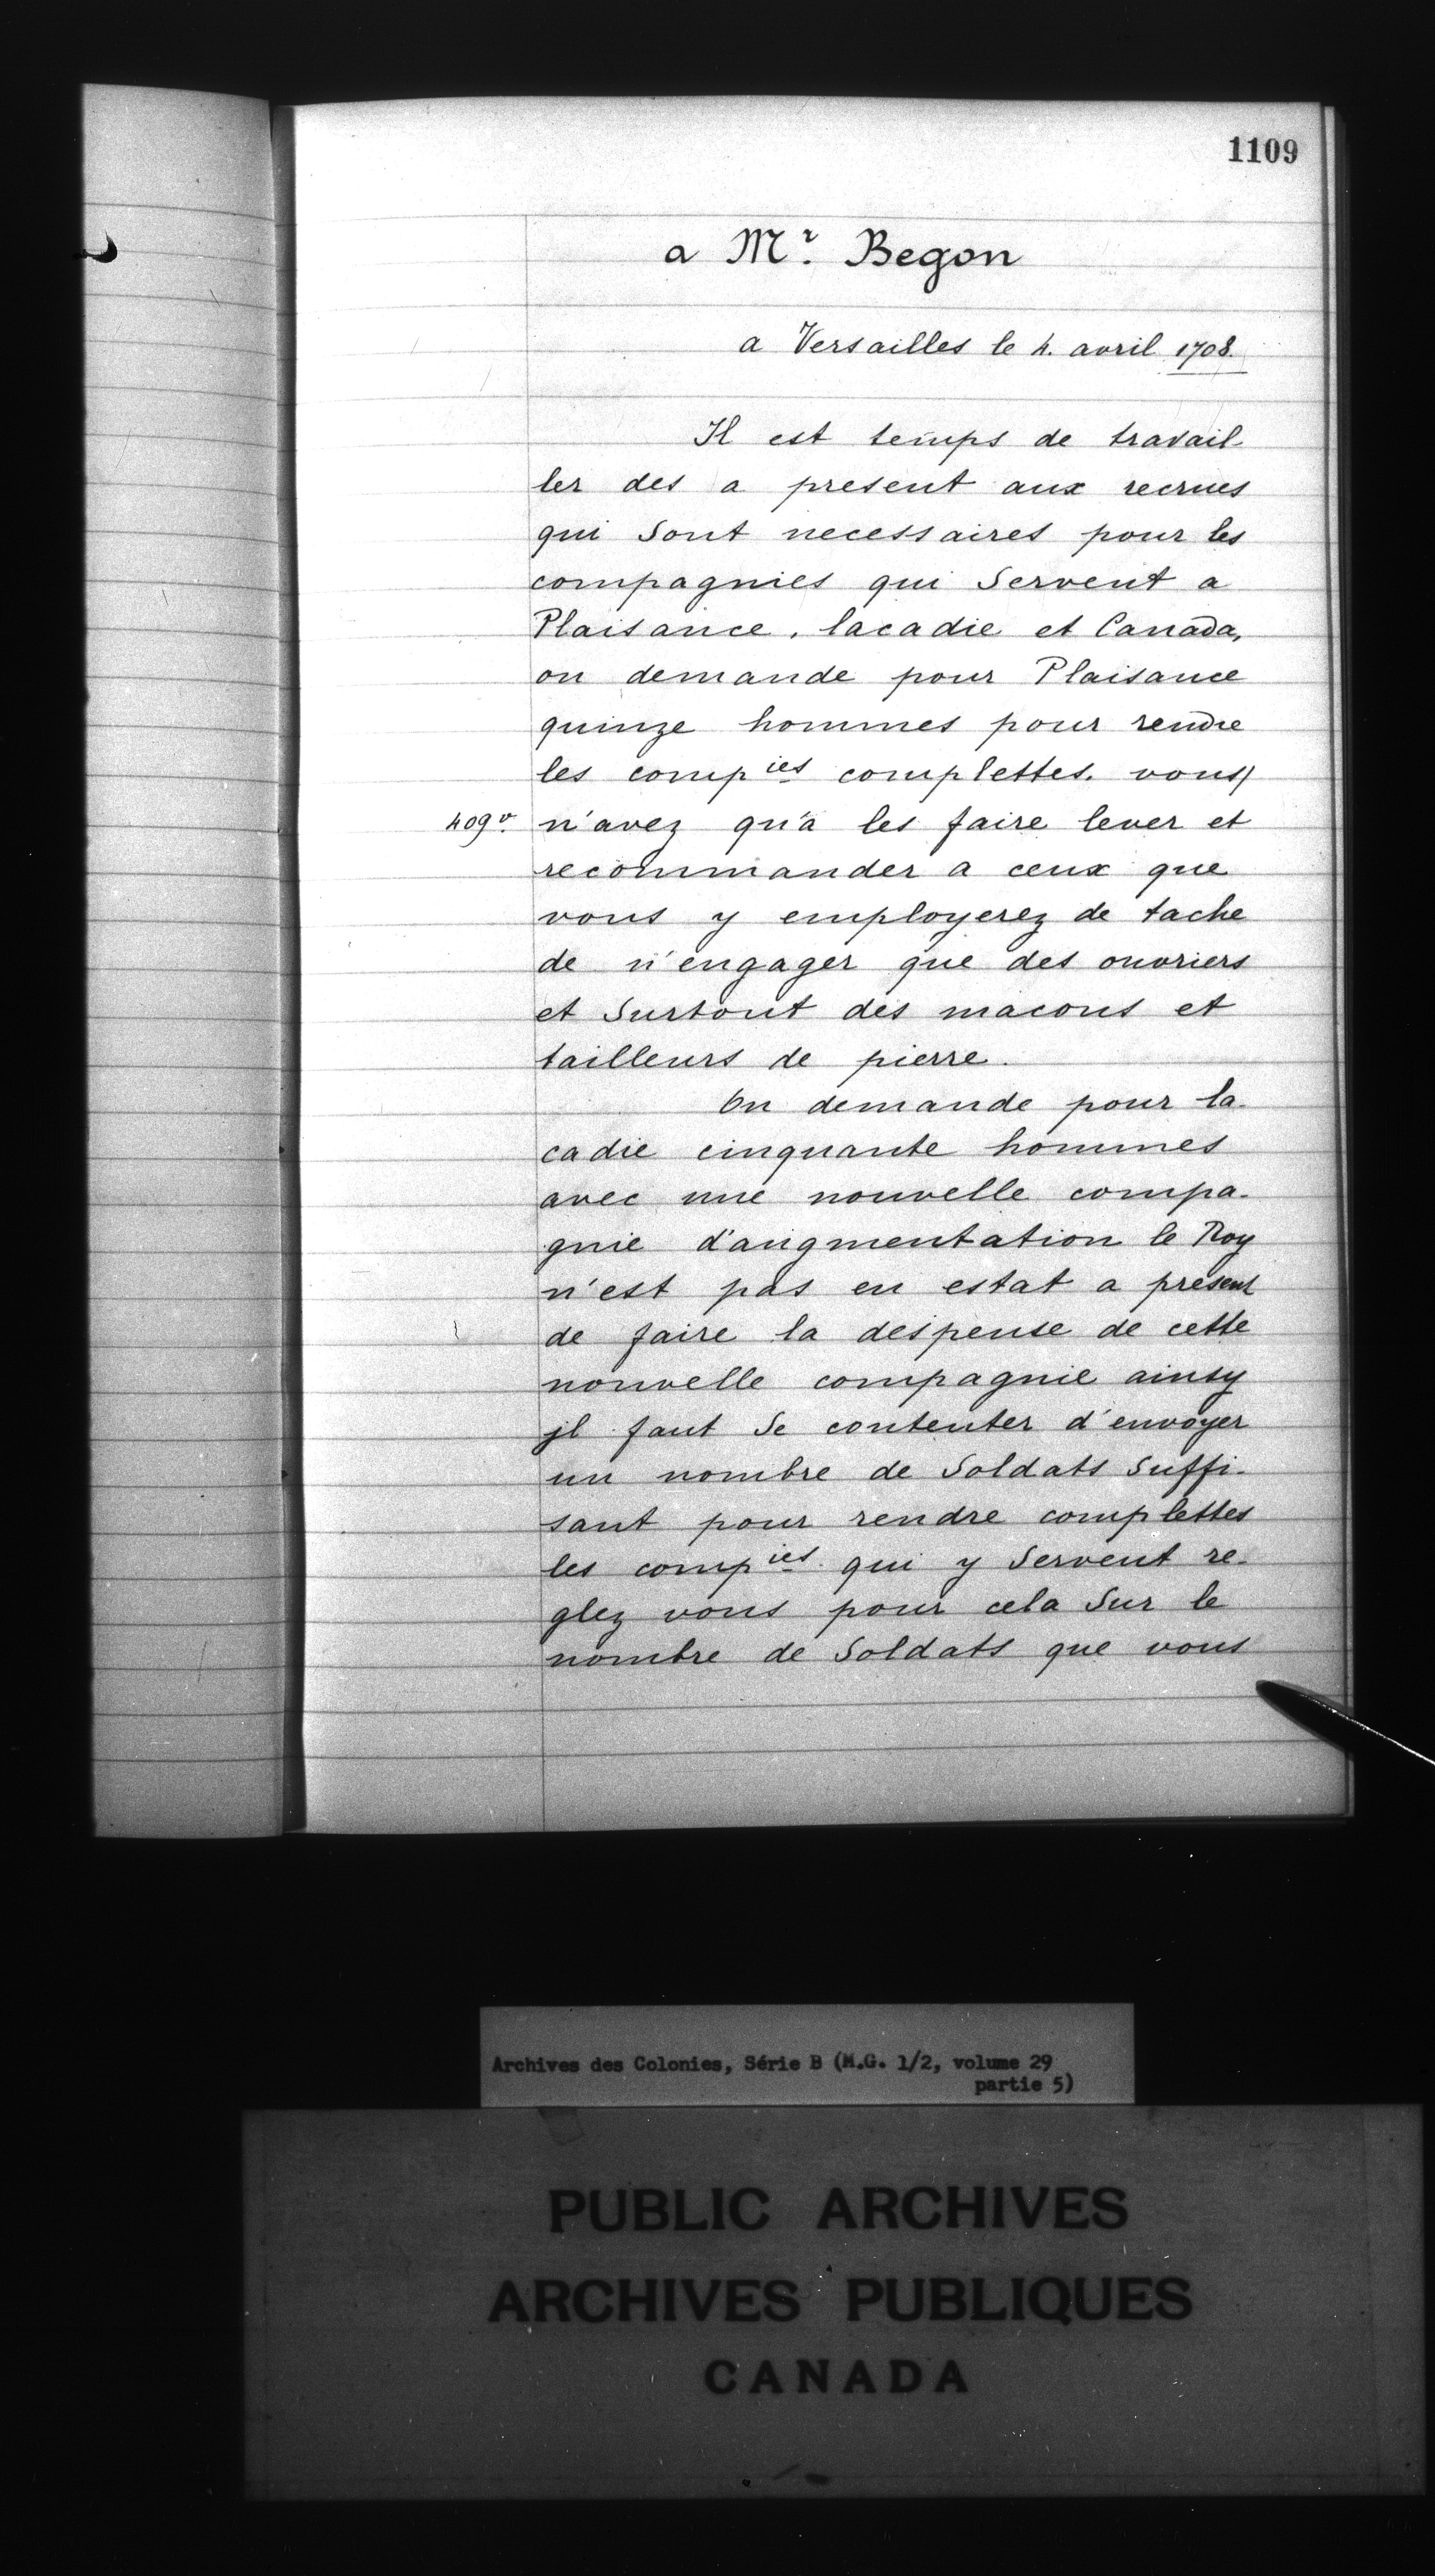 1109
a Mr. Begon
a Versailles le 4. avril 1708.
Il est temps de travail-
ler des a present aux recrues
qui Sont necessaires pour les
compagnies qui Servent a
Plaisance, lacadie et Canada,
on demande pour Plaisance
quinze hommes pour rendre
les compies complettes. vous/
409v. n'avez qu'à les faire lever et
recommander a ceux que
vous y employerez de tache
de n'engager que des ouvriers
et Surtout des macons et
tailleurs de pierre.
On demande pour la-
cadie cinquante hommes
avec une nouvelle compa-
gnie d'augmentation le Roy
n'est pas en estat a present
de faire la despense de cette
nouvelle compagnie ainsy
jl faut Se contenter d'envoyer
un nombre de Soldats Suffi-
sant pour rendre complettes
les compies qui y Servent re-
glez vous pour cela Sur le
nombre de Soldats que vous
Archives des Colonies, Série B (M.G. 1/2, volume 29
partie 5)
PUBLIC ARCHIVES
ARCHIVES PUBLIQUES
CANADA